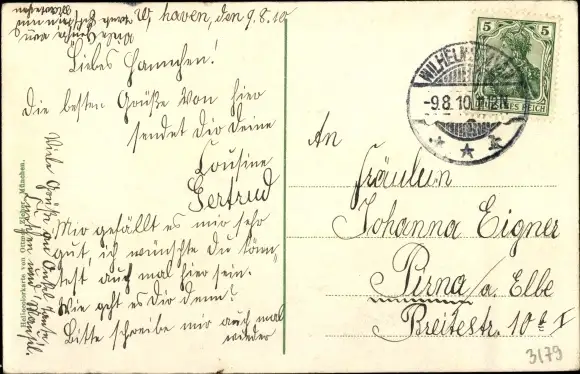 W, haven, den 9.8.10.
Liebes Hannchen!
Die besten Grüße von hier
sendet Dir Deine
Cousine
Gertrud
Mir gefällt es mir sehr
gut, ich wünschte Du könn-
test auch mal hier sein.
Wie geht es Dir denn?
Bitte schreibe mir auch mal
wieder
Viele Grüße an Onkel Tante
und Hansel.
Reliefkarte von Ottmar Zieher, München.
5 5
DEUTSCHES REICH
WILHELMSHAVEN
-9.8.10.11-12N
An
Fräulein
Johanna Eigner
Pirna a. Elbe
Breitestr. 10b I
3179